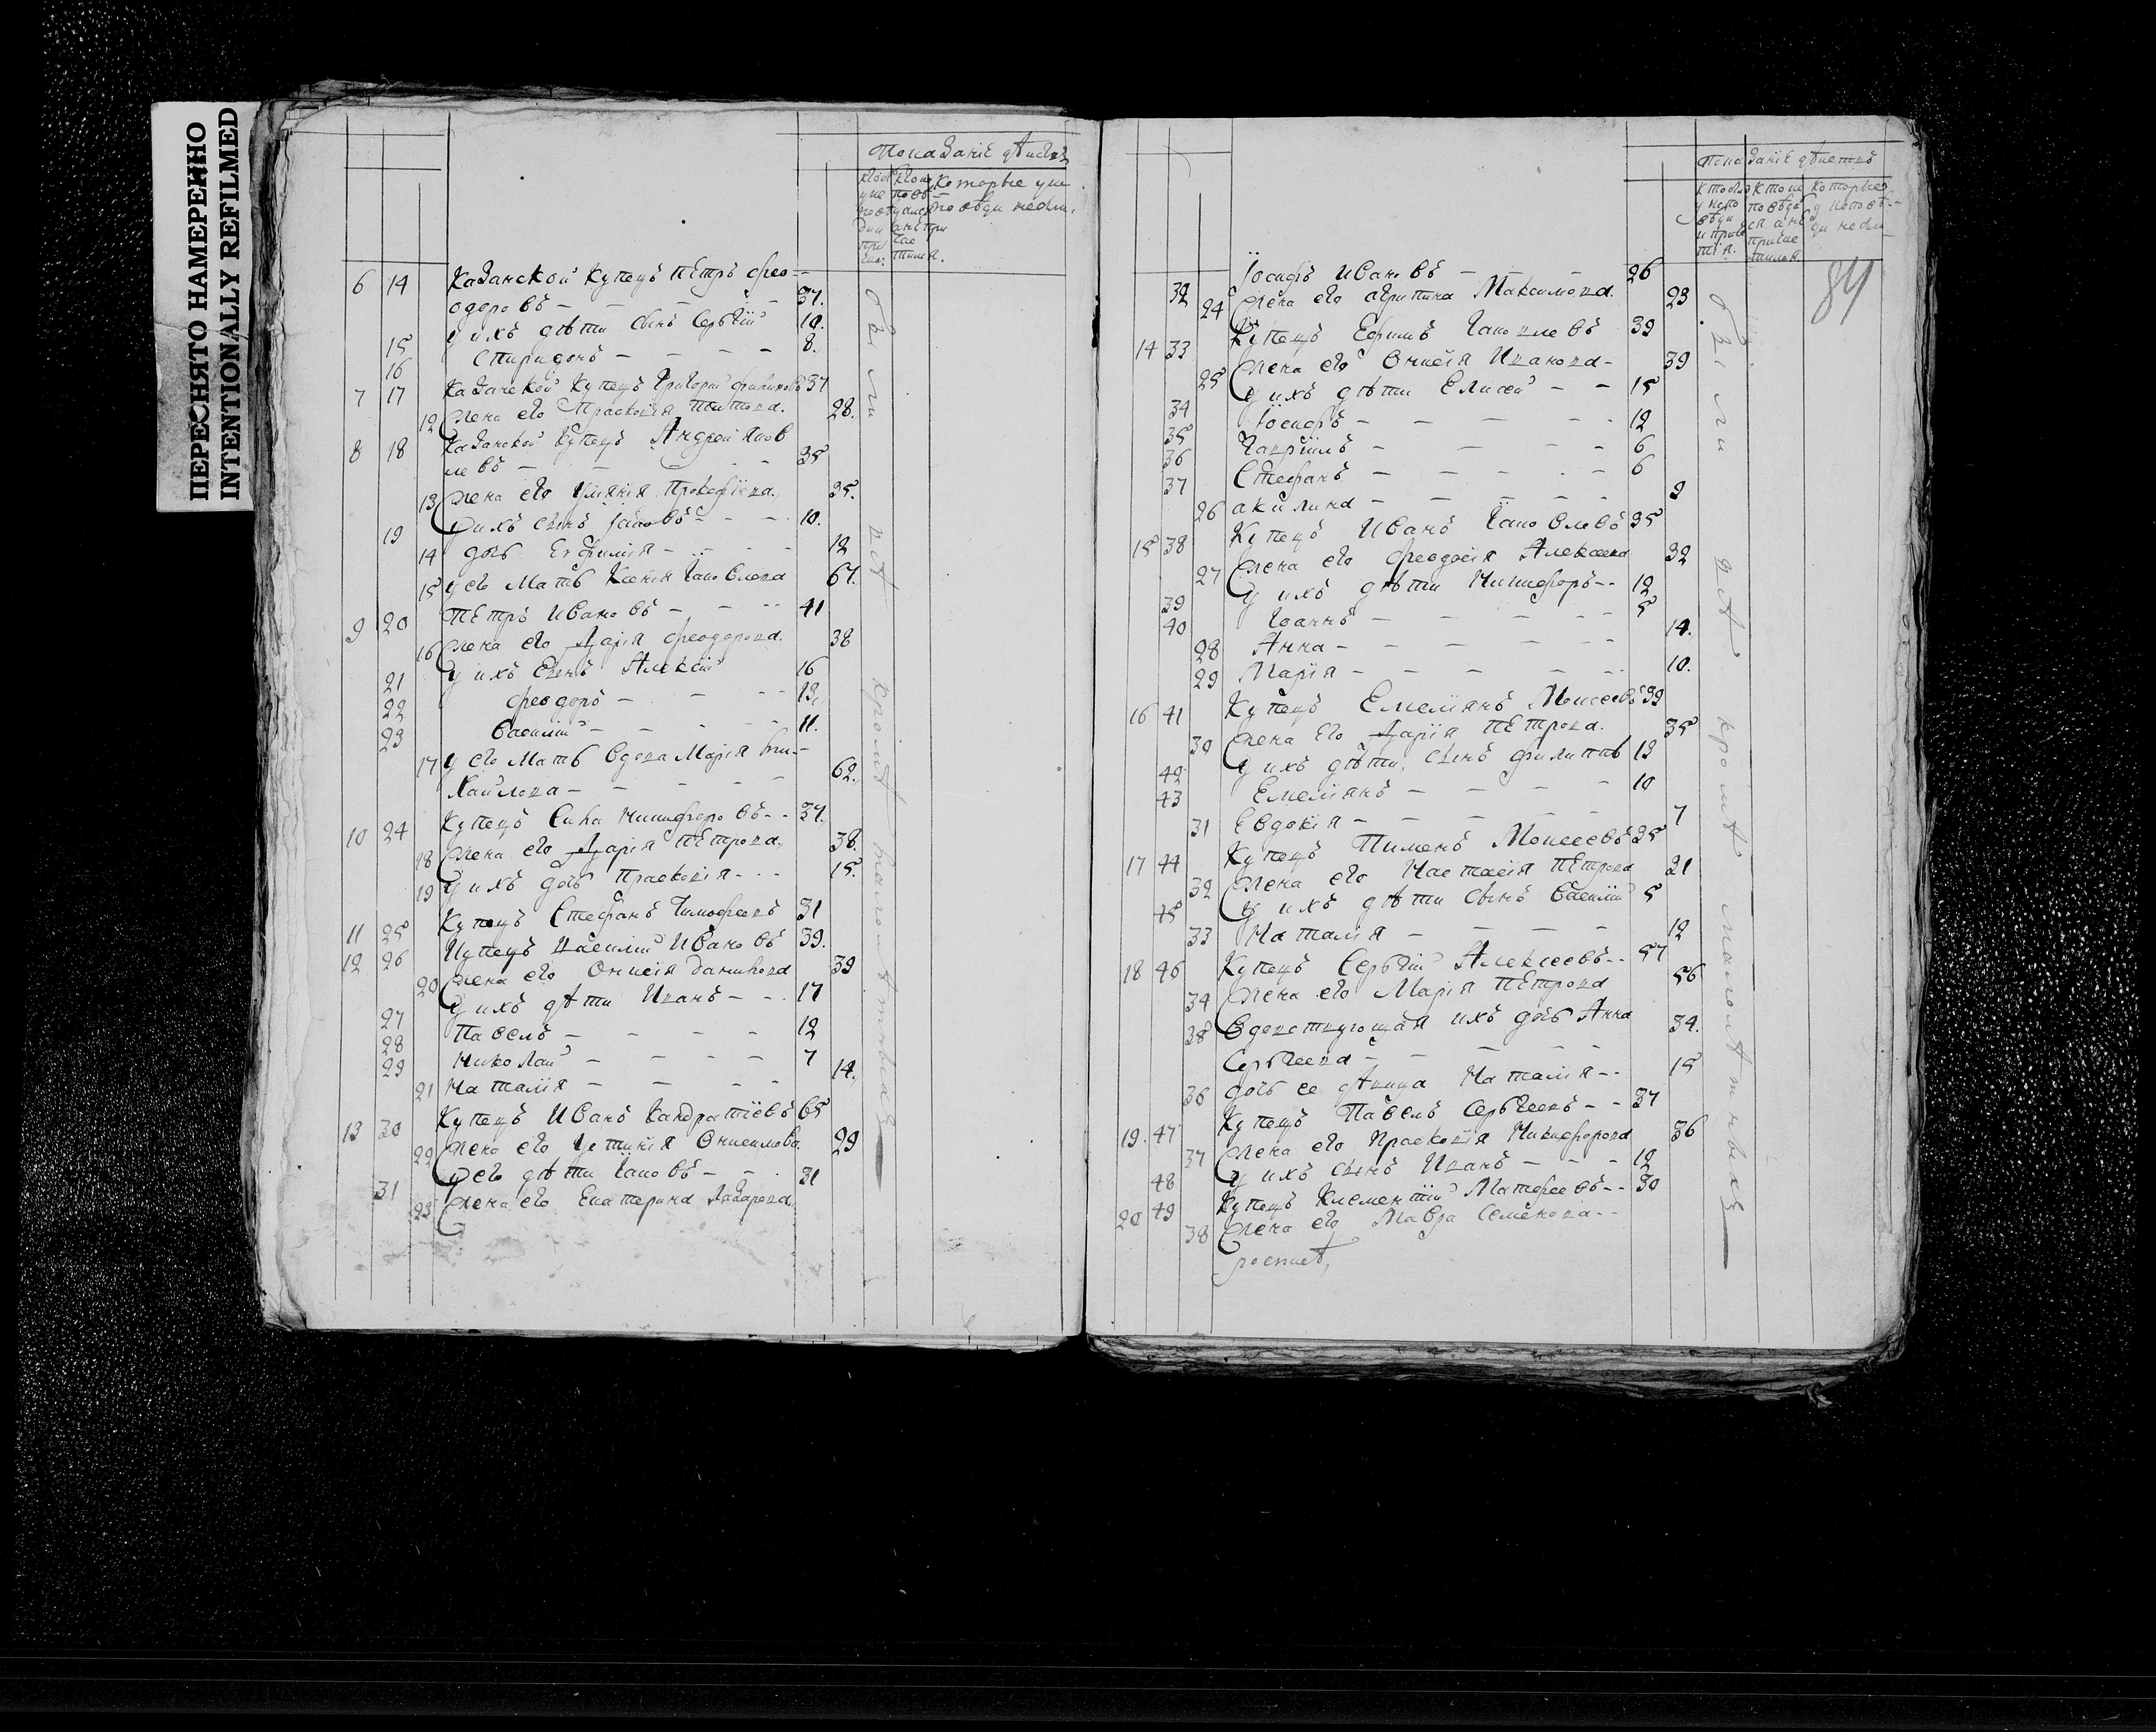 ПЕРЕСНЯТО НАМЕРЕННО
INTENTIONALLY REFILMED
Показание дѣйствъ
которые у ис
повѣди небыли.
6 14 Казанской купецъ Петръ Фео-
одоровъ - - - - 37.
15 у ихъ дѣти сынъ Сергѣй 10.
16 Спиридонъ - - - - 8.
7 17 Казанской купецъ Григорий Филиповъ 37
12 жена его Праскевия Титова. 28.
8 18 Казанской купецъ Андрей Яков
левъ - - - - 35
13 жена его Улияния Прокофиева. 35.
19 у ихъ сынъ Iаковъ - - - 10.
14 дочь Евфимия - - - - 12
15 у его мать Ксения Iаковлева 67.
9 20 Петръ Ивановъ - - - 41
16 жена его Дария Феодорова. 38
21 у ихъ сынъ Алексий 16
22 Феодоръ - - - - 13,
23 Василий - - - - 11.
17 у его мать вдова Мария Ми-
хайлова - - - - - 62.
10 24 купецъ Сила Никифоровъ - - 37.
18 жена его Дария Петрова, 38.
19 у ихъ дочь Праскевия - - - 15.
11 25 Купецъ Стефанъ Тимофеевъ 31
12 26 Купецъ Василий Ивановъ 39.
20 жена его Онисия Данилова 39
27 у ихъ дѣти Иванъ - - 17
28 Павелъ - - - - 12
29 Николай - - - - 7
21 Наталия - - - - 14.
13 30 Купецъ Иванъ Кандратиевъ 65
22 жена его Устиния Онисимова. 29
31 у его дѣти Iаковъ - - - 31
23 жена его Екатерина Лазарева,
были всѣ кромѣ малолѣтныхъ
Показание дѣйствъ
которые
у исповѣ-
ди небы-
84
32 Iосифъ Ивановъ - - - 26
24 жена его Агрипина Максимова. 23
14 33 Купецъ Ефимъ Iаковлевъ 39
25 жена его Онисия Иванова - 39
34 у ихъ дѣти Елисей - - 15
35 Iосифъ - - - - - 12
36 Гавриилъ - - - - 6
37 Стефанъ - - - - - 6
26 акилина - - - - - 9
15 38 Купецъ Иванъ Iаковлевъ 35
27 жена его Феодосия Алексеева 32
39 у ихъ дѣти Никифоръ - - 12
40 Iоаннъ - - - - - 5
28 Анна - - - - - - 14.
29 Мария - - - - - - 10.
16 41 Купецъ Емелиянъ Моисеевъ 39
30 жена Его Дария Петрова. 35
42 у ихъ дѣти, сынъ Филиппъ 13
43 Емелиянъ - - - - 10
31 Евдокия - - - - - 7
17 44 Купецъ Пименъ Моисеевъ 35
32 жена его Настасия Петрова 21
45 у ихъ дѣти сынъ Василий 5
33 Наталия - - - - 12
18 46 Купецъ Сергѣй Алексеевъ - - 57
34 жена его Мария Петрова 56
38 вдовствующая ихъ дочь Анна 34.
Сергѣева - - - - -
36 дочь ее дѣвица Наталия - - 15
19. 47 Купецъ Павелъ Сергѣевъ - - 37
37 жена его Праскевия Никифорова 36
48 у ихъ сынъ Иванъ - - - 12
20 49 Купецъ Клементий Матфеевъ - - 30
38 жена его Мавра Семенова - -
были всѣ кромѣ малолѣтныхъ